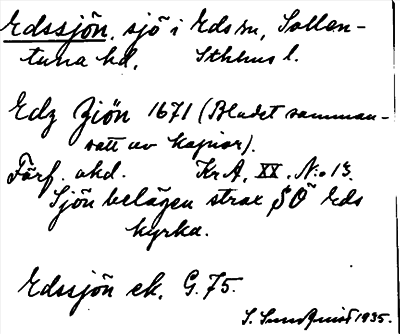 Edssjön, sjö i Eds sn, Sollen-
tuna hd, Sthlms l.
Edz Ziön 1671 (Bladet samman-
satt av kopior).
Förf. okd. Kr.A. XX. N:o 13.
Sjön belägen strax SÖ Eds
kyrka.
Edssjön ek. G. 75.
S. Sundquist 1935.